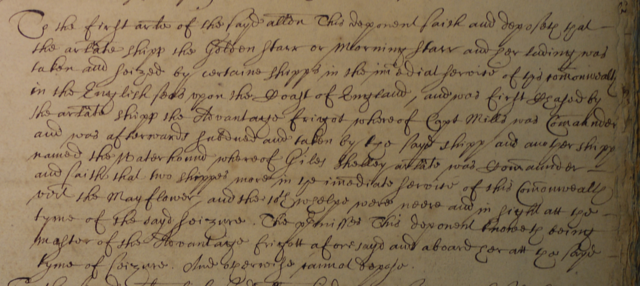 To the first arle of the sayd allon This deponent saith and deposeth that
the arlate shipp the Golden Starr or Morning Starr and her lading was
taken and seized by certaine shipps in the imediat service of this comonwealth
in the English seas upon the Coast of England, and was first chased by
the arlate shipp the Advantage ffrigot whereof Capt Mills was Comander
and was afterwards and taken by the sayd shipp and another shipp
named the Waterhound whereof Giles Shelley arlate was Comaunder
and saith that two shippes more in the imediate service of this Comonwealth
vizt the Mayflower, and the 10th whelpe were neere and in sight att the
tyme of the sayd seizure. The premisses This deponent knoweth being
Master of the Advantage ffrigott aforesayd and aboard her att the sayd
tyme of seizure. And otherwise cannot depose.